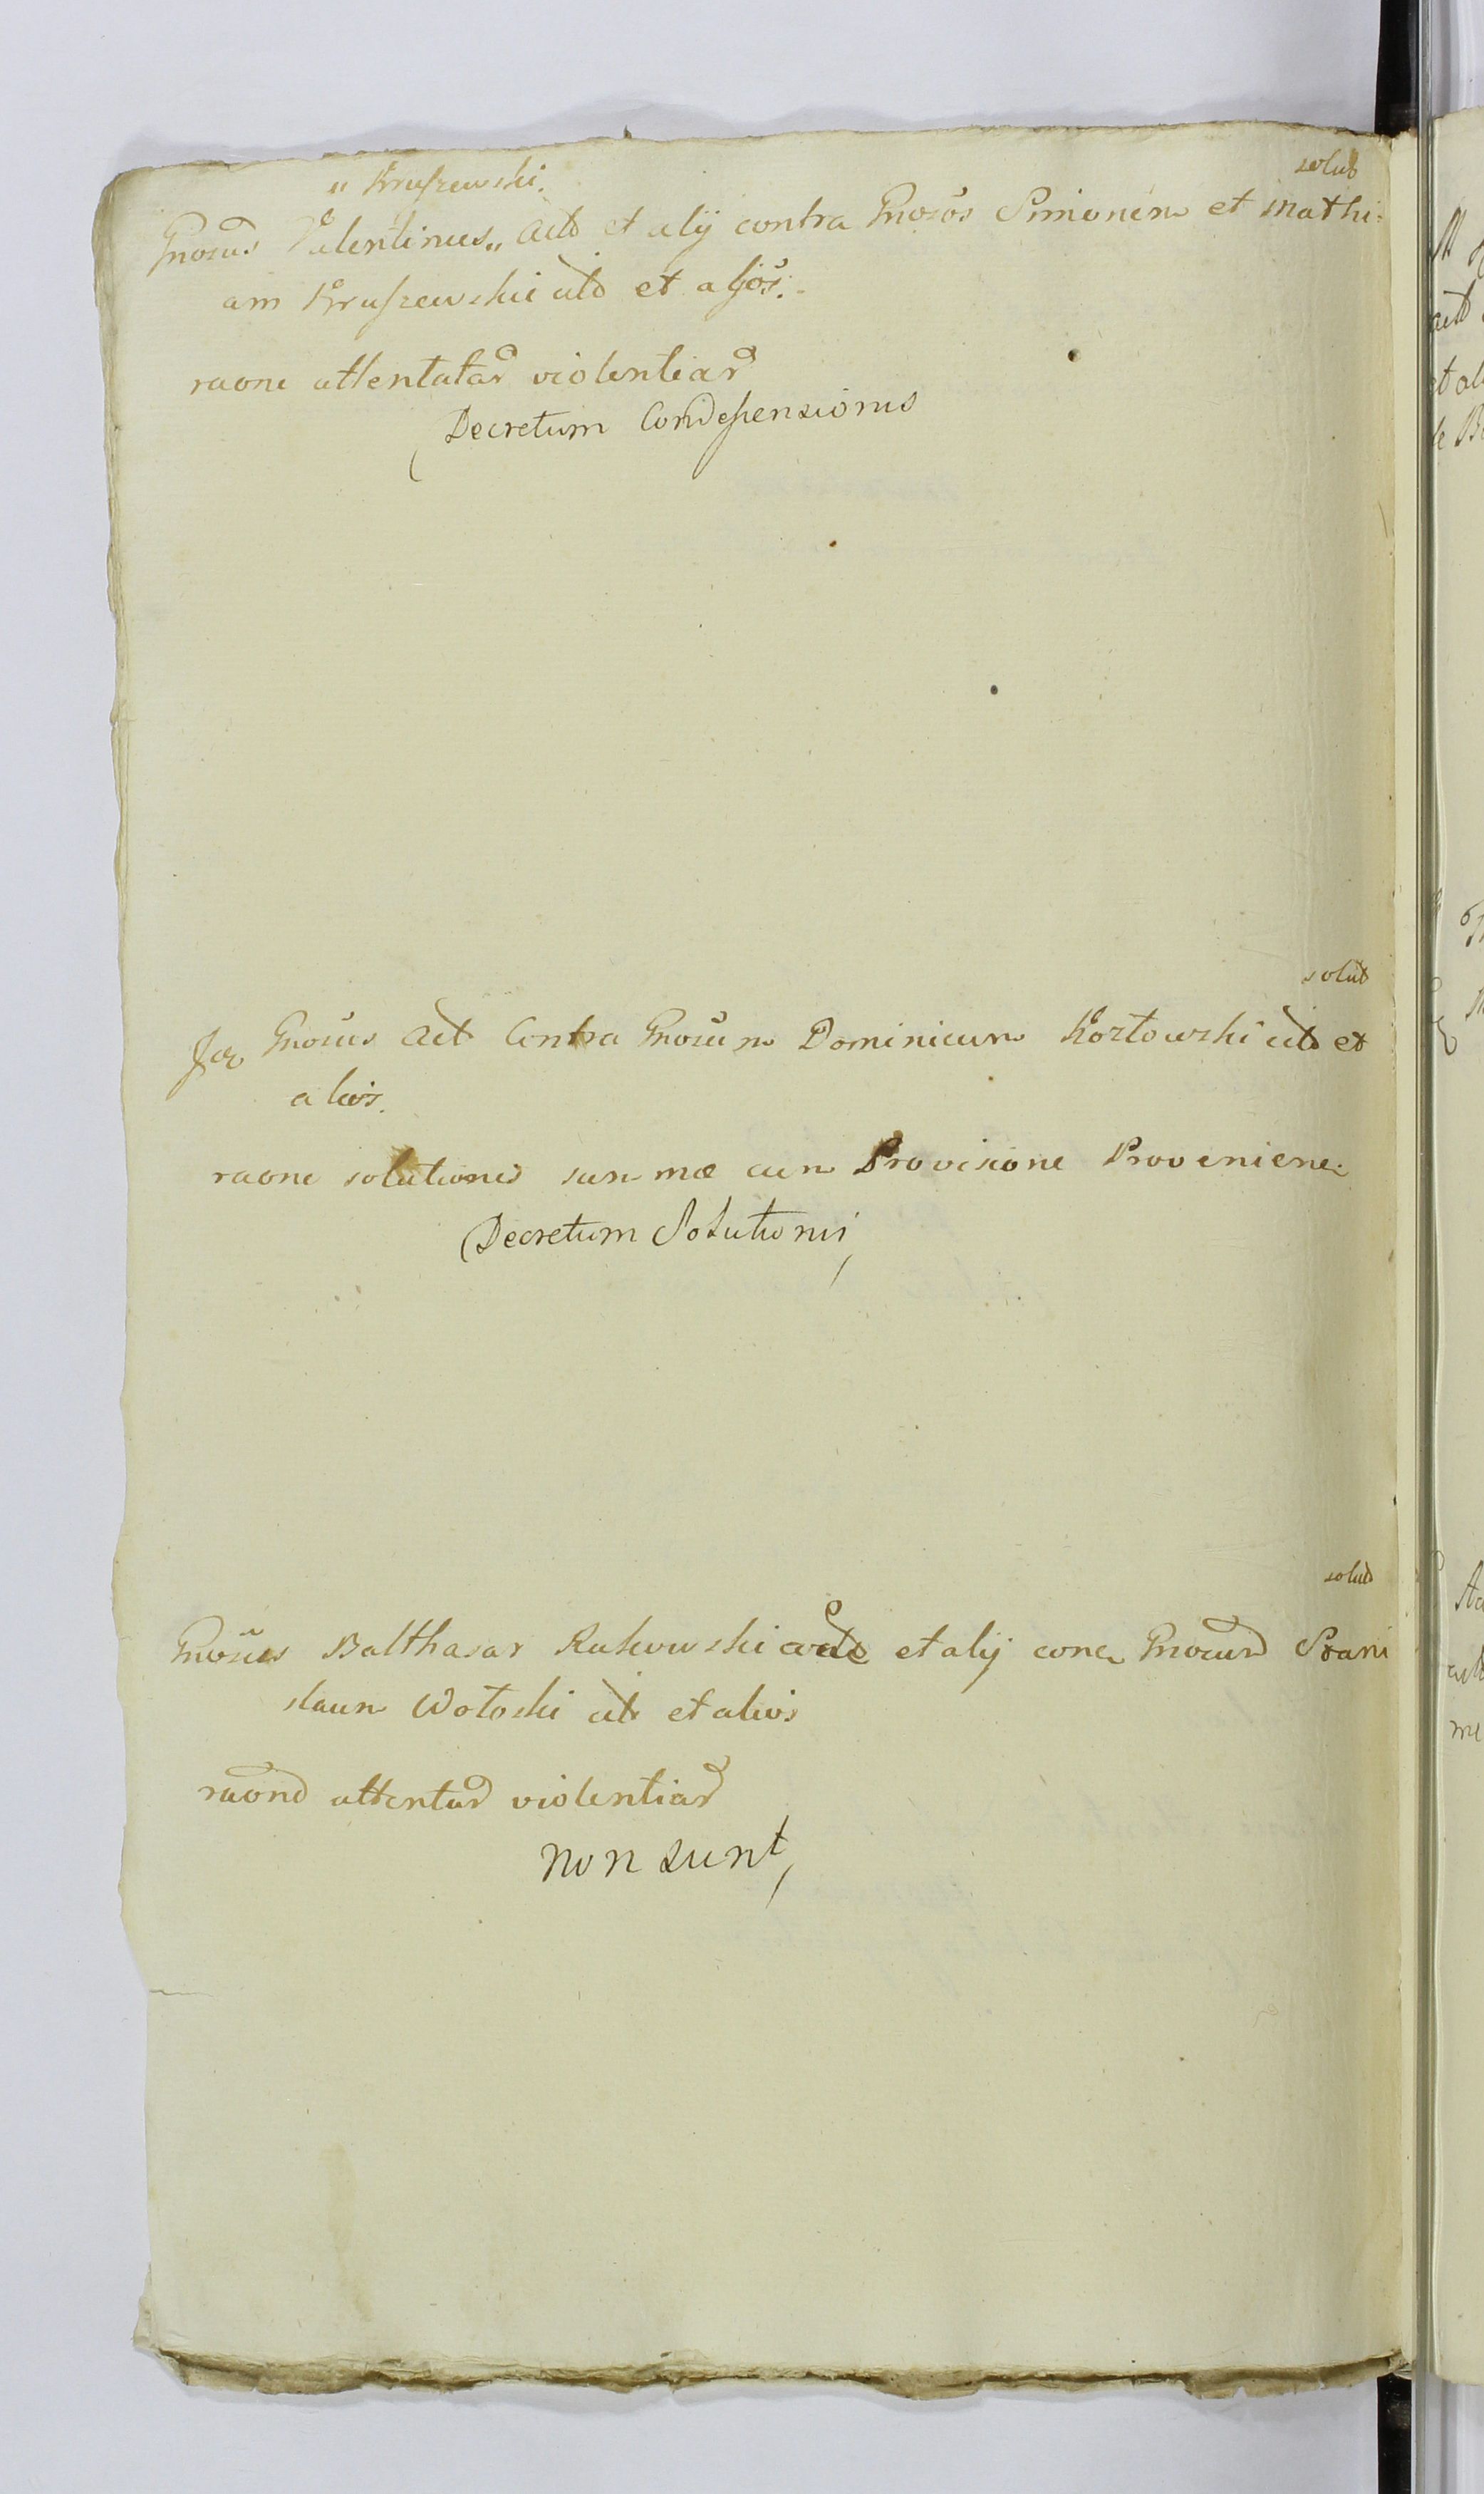 solut
" Kruszewski.
Gnosus Valentinus " Act et alij contra Gnosos Simonem et Mathi=
am Kruszewskie cit et alios.
raone attentatar violentiar
Decretum Condescensionis
solut
Gnosus Act Contra Gnosum Dominicum Kozłowski cit et
alios.
raone solutionis summæ cum Provisione Provenien.
Decretum Solutionis
solut
Gnosus Balthasar Rukowski act et alij conc Gnosum Stani
slaum Wołoski cit et alios
raone attentar violentiar
non sunt